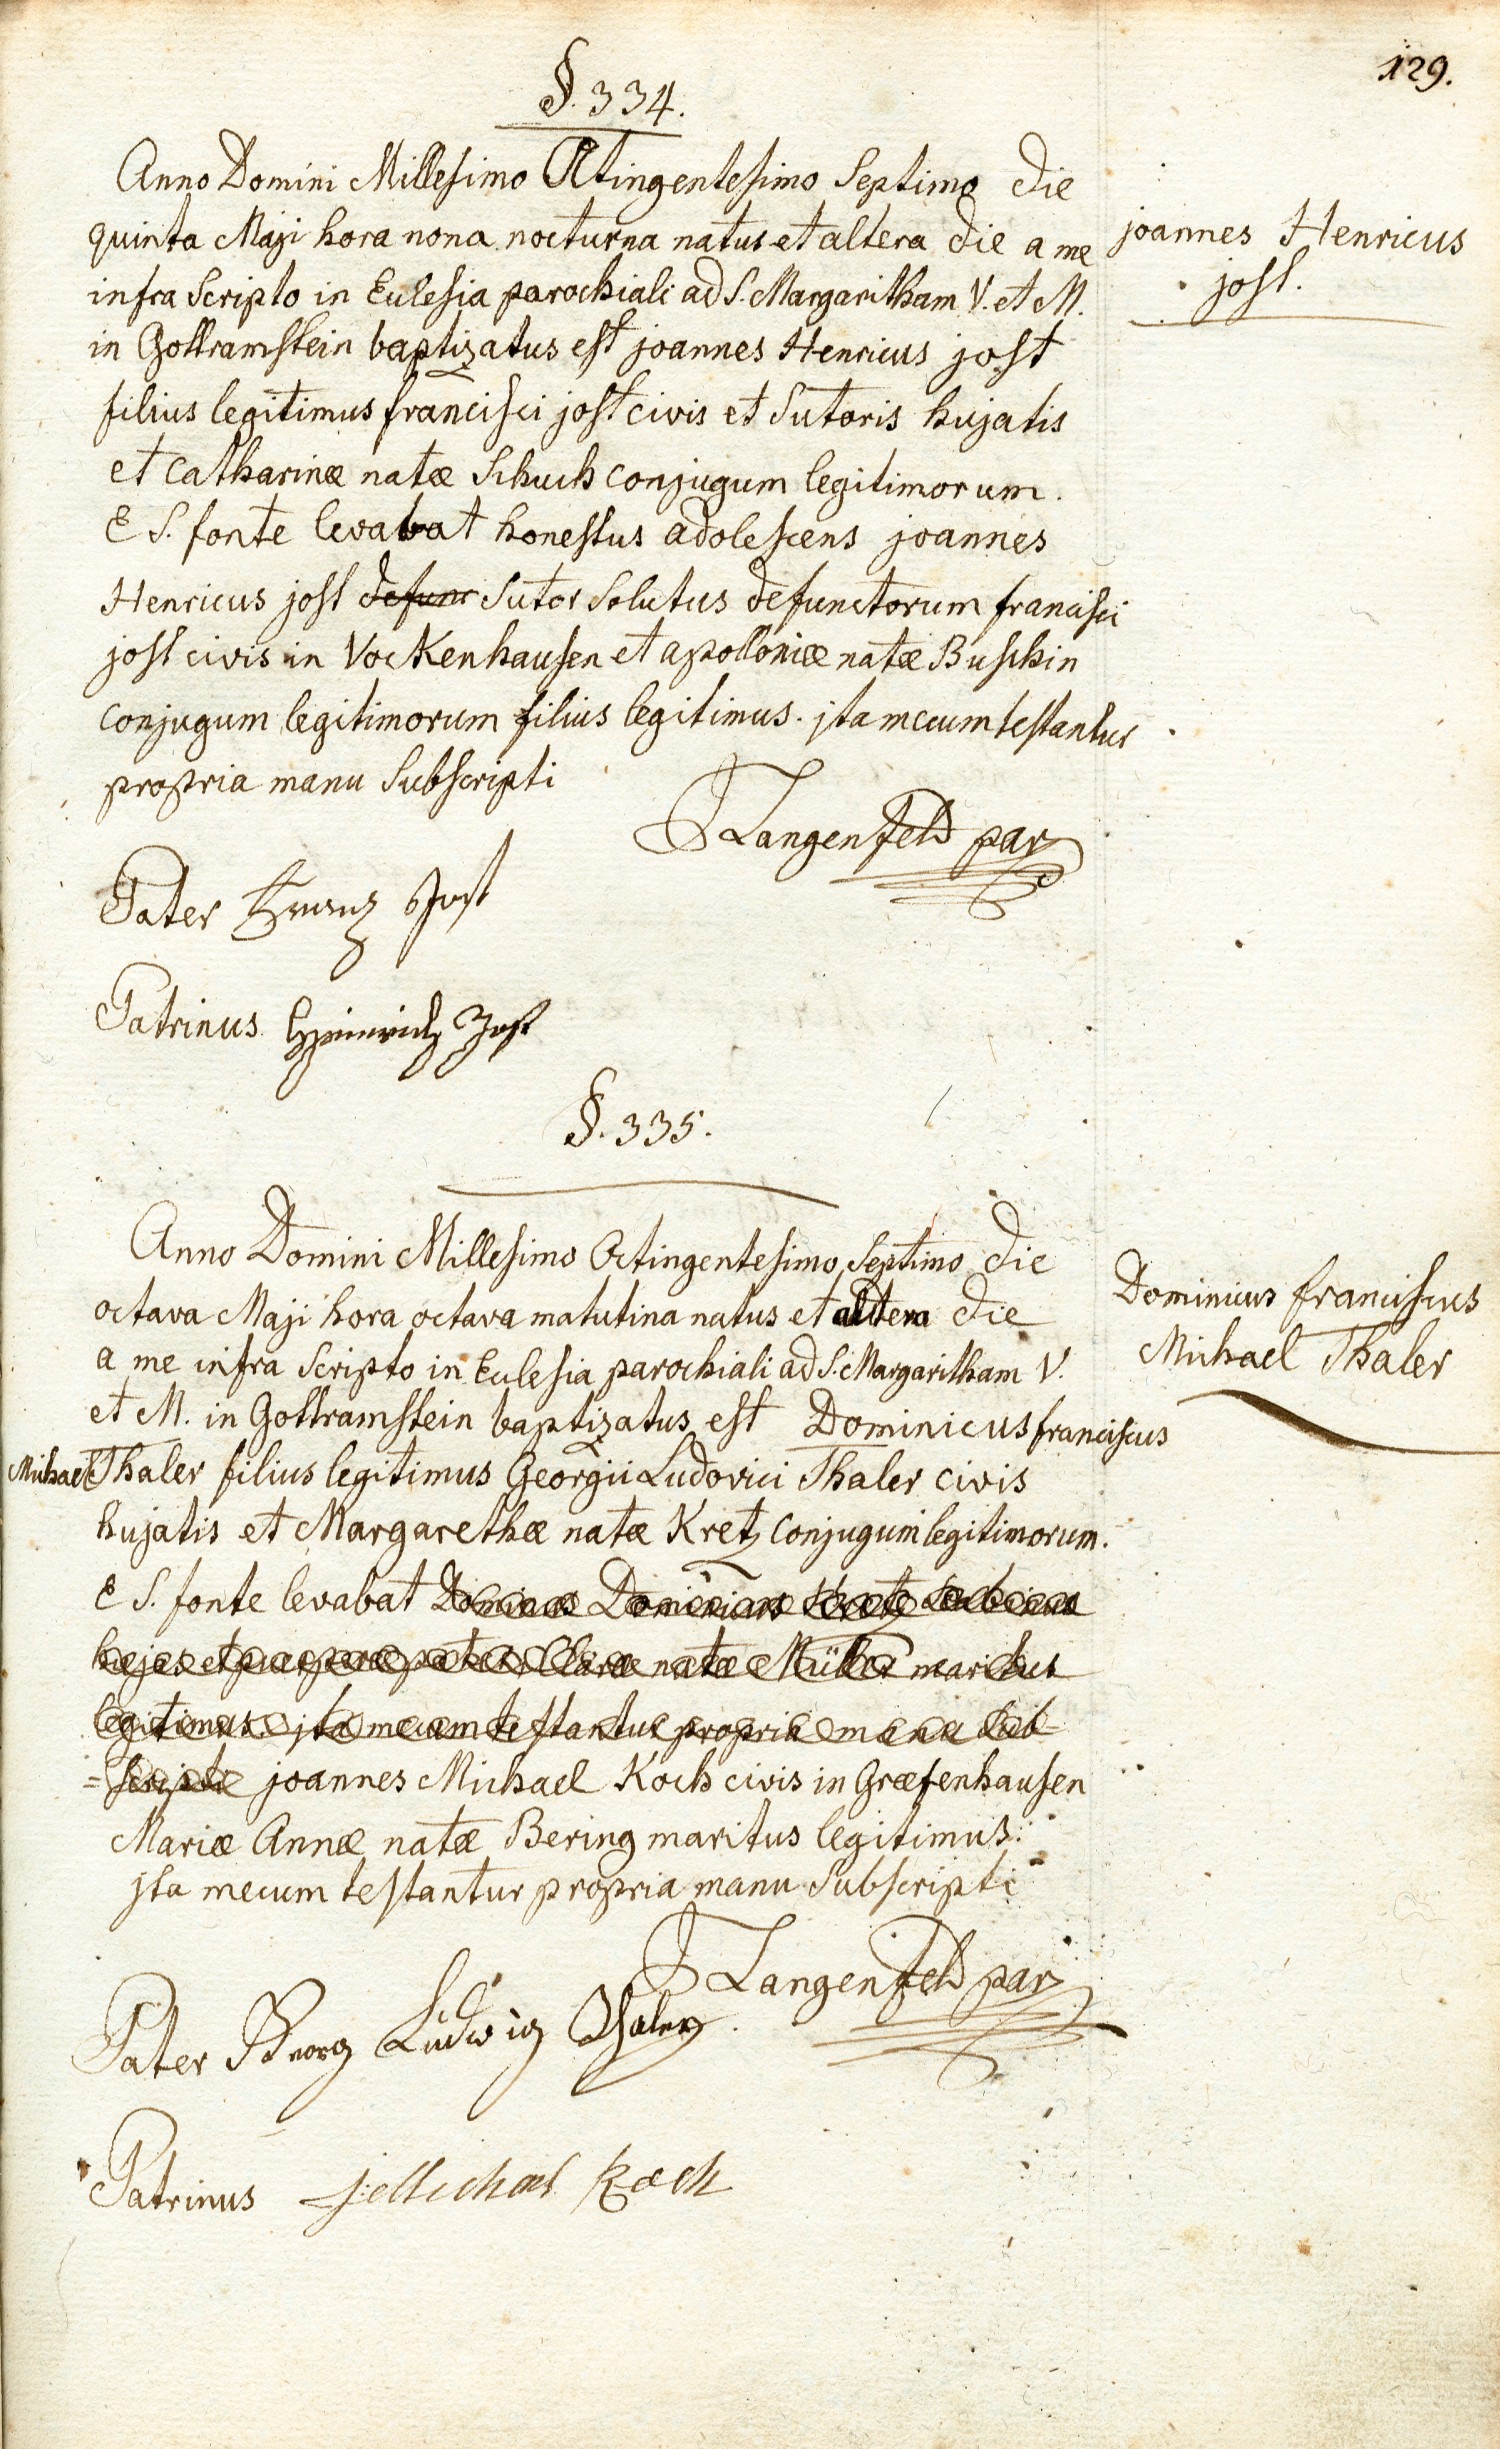 129.
§. 334.
Anno Domini Millesimo Octingentesimo Septimo die
quinta Maji hora nona nocturna natus et altera die a me
infra Scripto in Eulesia parochiali ad S. Margaritham V. et M.
in Gottramstein baptizatus est joannes Henricus jost
filius legitimus francisci jost civis et Sutoris hujatis
et Catharinæ natæ Schuch conjugum legitimorum.
E S. fonte levabat honestus adolescens joannes
Henricus jost defunc Sutor Solutus defunctorum francisci
jost civis in Vockenhausen et apolloniæ natæ Buschin
conjugum legitimorum filius legitimus. jta mecum testantur
propria manu Subscripti
joannes Henricus
jost.
J Langenfeld par
Pater Franz Jost
Patrinus Heinrich Jost
§. 335.
Anno Domini Millesimo Octingentesimo Septimo die
octava Maji hora octava matutina natus et altera die
a me infra Scripto in Eulesia parochiali ad S. Margaritham V.
et M. in Gottramstein baptizatus est Dominicus franciscus
Michael Thaler filius legitimus Georgii Ludovici Thaler civis
hujatis et Margarethæ natæ Kretz conjugum legitimorum.
E S. fonte levabat Dominus Dominicus Kretz
natæ Müller maritus
legitimus. jta mecum testantur propria manu Sub-
=scripti joannes Michael Koch civis in Græfenhausen
Mariæ Annæ natæ Bering maritus legitimus.
jta mecum testantur propria manu Subscripti
Dominicus franciscus
Michael Thaler
J Langenfeld par
Pater Georg Ludwig Thaler.
Patrinus j Michael Koch